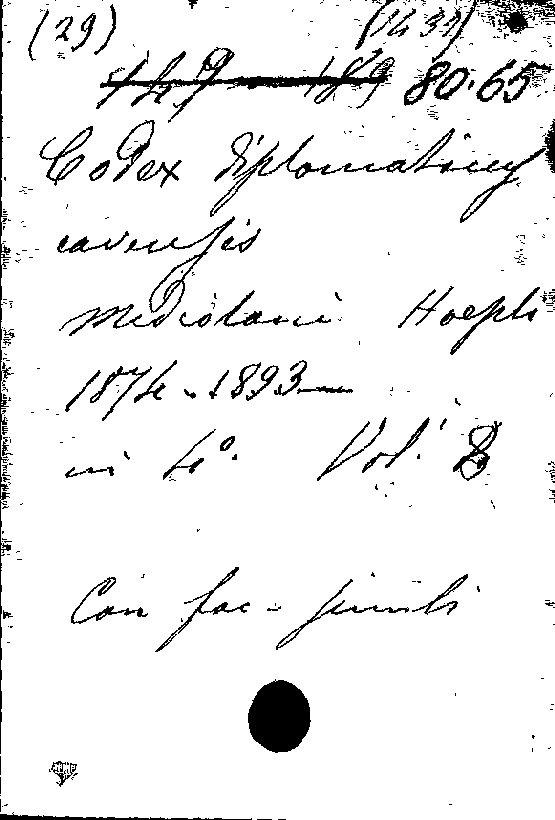 (29) (1434)
149 189 80.65
Codex diplomaticus
cavensis
Mediolani Hoepli
1874-1893
in 4º. Vol. 8
Con fac-simili